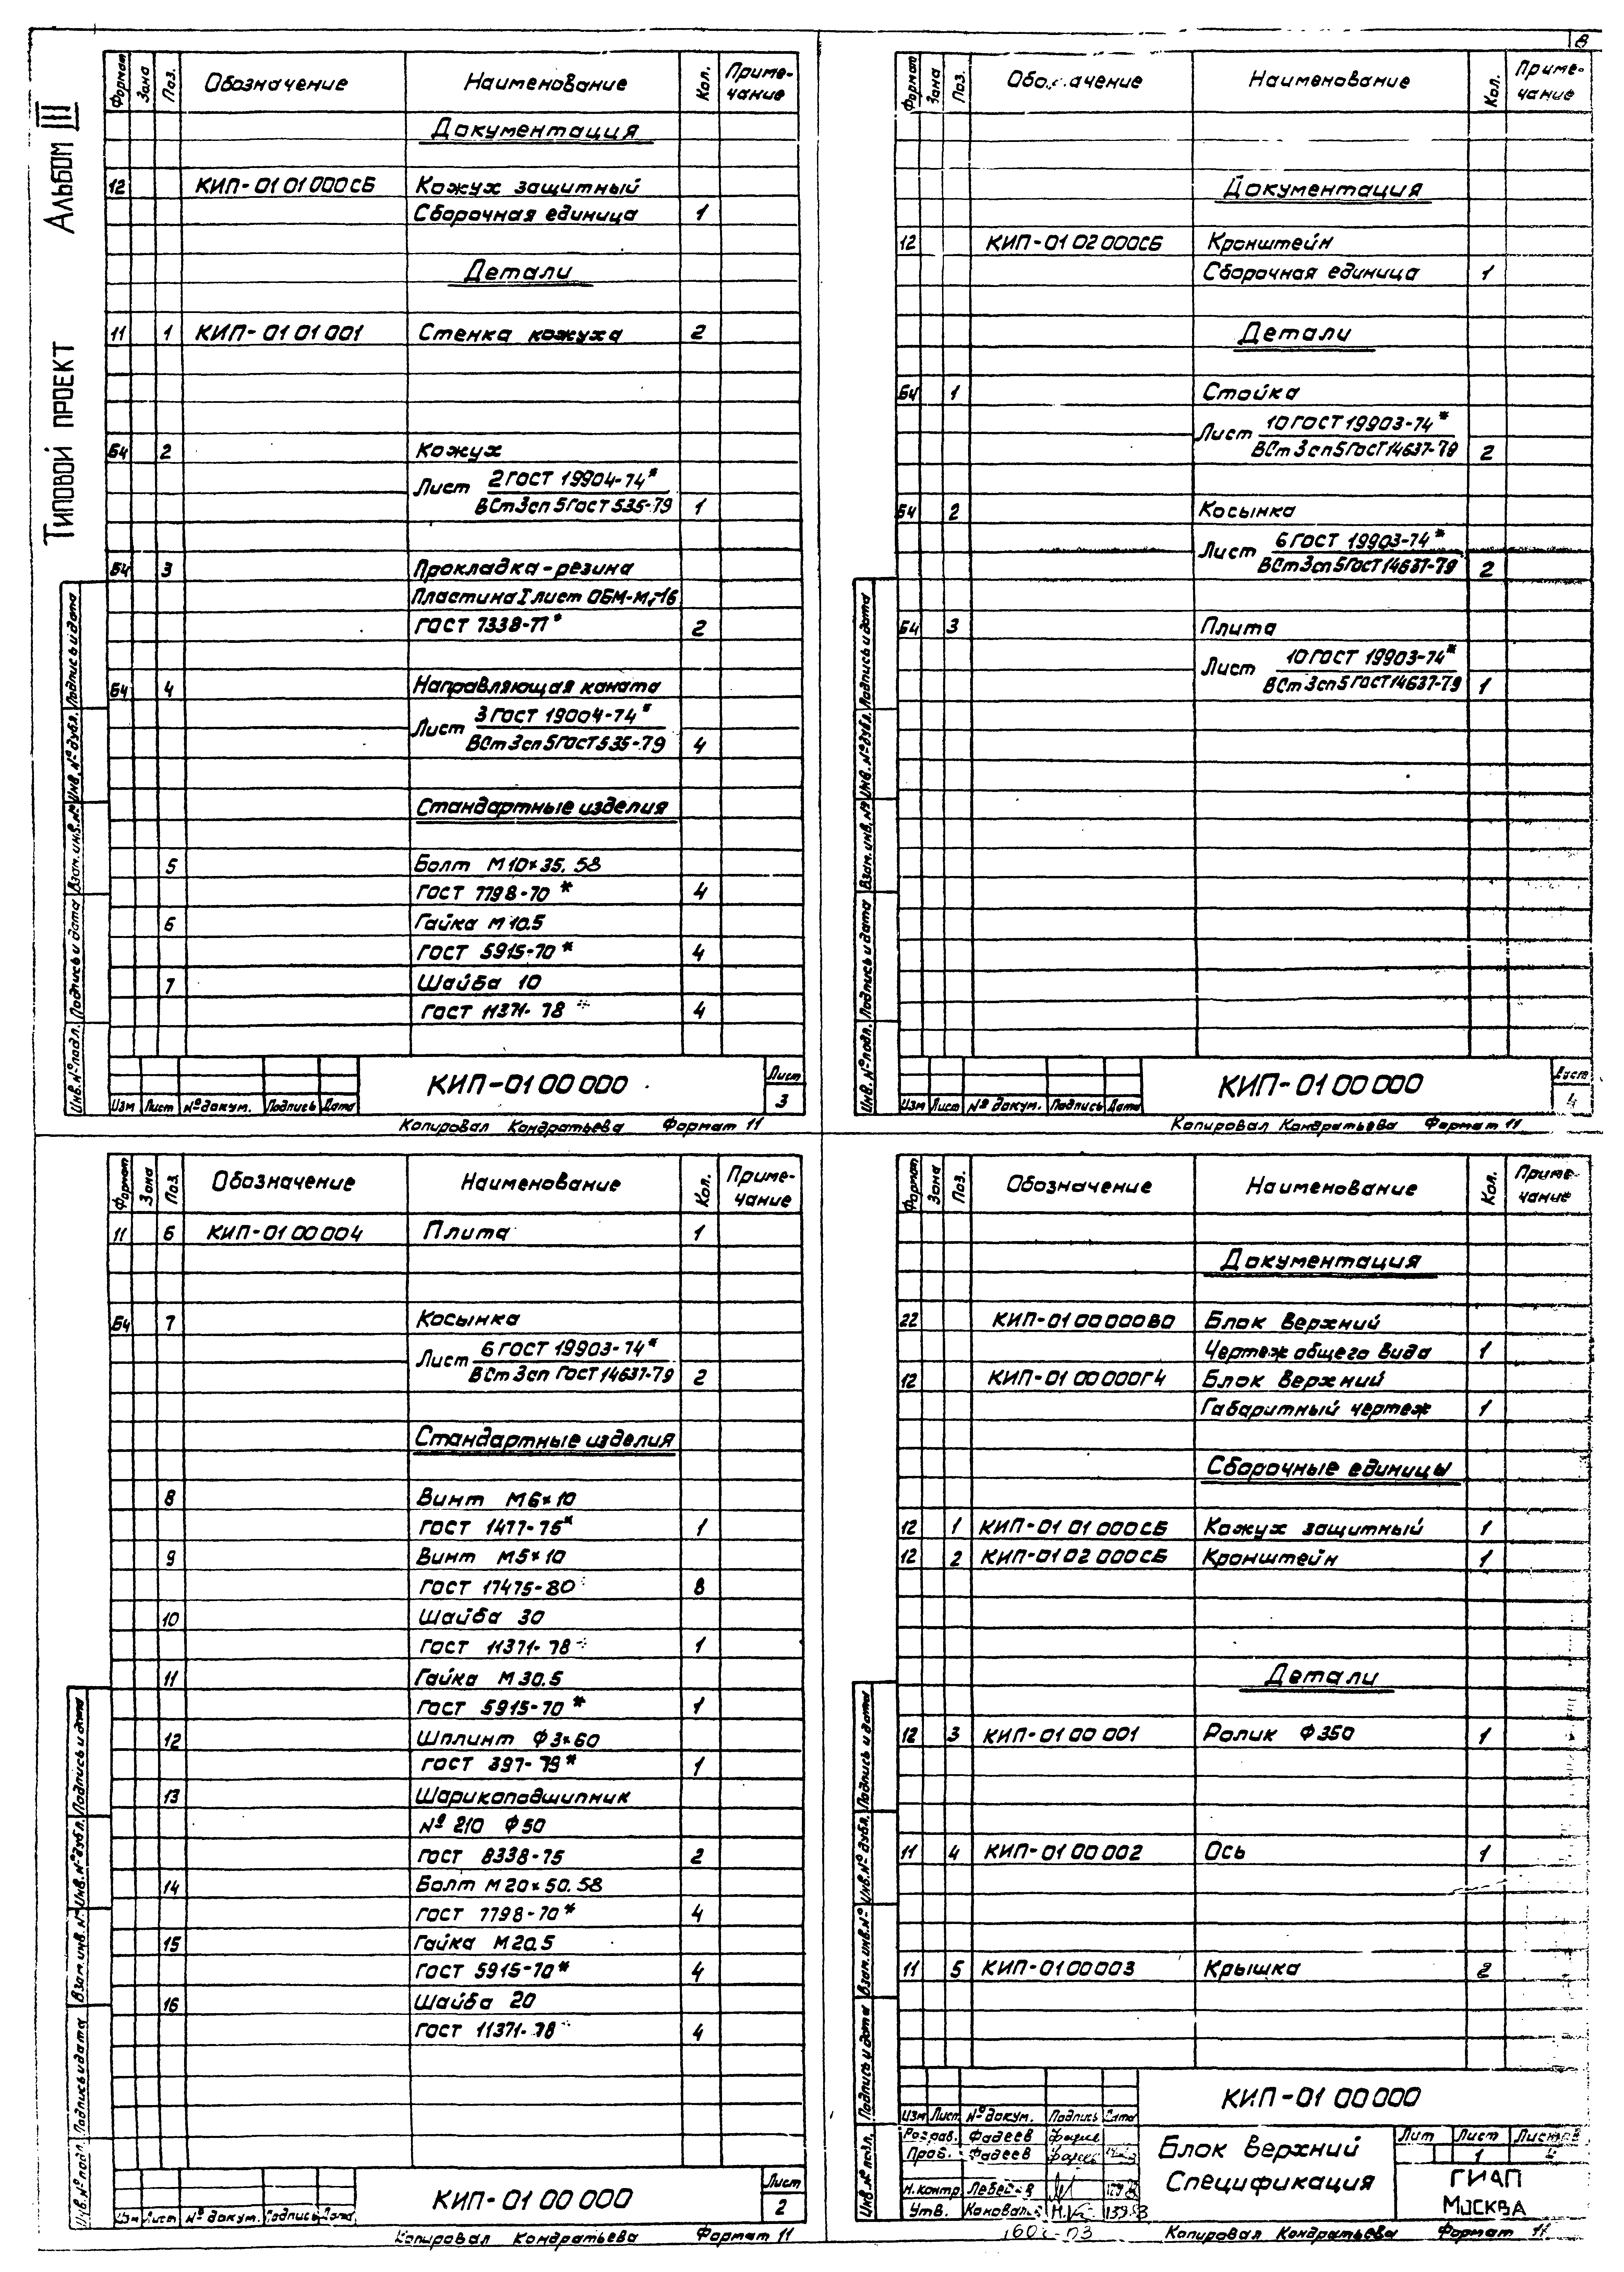 8
Типовой проект Альбом III
Формат Зона Поз. Обозначение Наименование Кол. Приме-
чание
Документация
12 КИП-01 01 000СБ Кожух защитный
Сборочная единица 1
Детали
11 1 КИП-01 01 001 Стенка кожуха 2
Б4 2 Кожух
Лист 2 ГОСТ 19904-74*
ВСт3сп5 ГОСТ 535-79 1
Б4 3 Прокладка-резина
Пластина I лист ОБМ-М,-16
ГОСТ 7338-77* 2
Б4 4 Направляющая каната
Лист 3 ГОСТ 19004-74*
ВСт3сп5 ГОСТ 535-79 4
Стандартные изделия
5 Болт М10×35.58
ГОСТ 7798-70* 4
6 Гайка М10.5
ГОСТ 5915-70* 4
7 Шайба 10
ГОСТ 11371-78 4
Инв. № подл. Подпись и дата Взам. инв. № Инв. № дубл. Подпись и дата
КИП-01 00 000
Лист
3
Изм Лист № докум. Подпись Дата
Копировал Кондратьева Формат 11
Формат Зона Поз. Наименование Кол. Приме-
чание
Документация
12 КИП-01 02 000СБ Кронштейн
Сборочная единица 1
Детали
Б4 1 Стойка
Лист 10 ГОСТ 19903-74*
ВСт3сп5 ГОСТ 14637-79 2
Б4 2 Косынка
Лист 6 ГОСТ 19903-74*
ВСт3сп5 ГОСТ 14637-79 2
Б4 3 Плита
Лист 10 ГОСТ 19903-74*
ВСт3сп5 ГОСТ 14637-79 1
Инв. № подл. Подпись и дата Взам. инв. № Инв. № дубл. Подпись и дата
КИП-01 00 000
Лист
4
Изм Лист № докум. Подпись Дата
Копировал Кондратьева Формат 11
Формат Зона Поз. Обозначение Наименование Кол. Приме-
чание
11 6 КИП-01 00 004 Плита 1
Б4 7 Косынка
Лист 6 ГОСТ 19903-74*
ВСт3сп ГОСТ 14637-79 2
Стандартные изделия
8 Винт М6×10
ГОСТ 1477-75* 1
9 Винт М5×10
ГОСТ 17475-80 8
10 Шайба 30
ГОСТ 11371-78 1
11 Гайка М30.5
ГОСТ 5915-70* 1
12 Шплинт Ф3×60
ГОСТ 397-79* 1
13 Шарикоподшипник
№ 210 Ф50
ГОСТ 8338-75 2
14 Болт М20×50.58
ГОСТ 7798-70* 4
15 Гайка М20.5
ГОСТ 5915-70* 4
16 Шайба 20
ГОСТ 11371-78 4
Инв. № подл. Подпись и дата Взам. инв. № Инв. № дубл. Подпись и дата
КИП-01 00 000
Лист
2
Изм Лист № докум. Подпись Дата
Копировал Кондратьева Формат 11
Формат Зона Поз. Обозначение Наименование Кол. Приме-
чание
Документация
22 КИП-01 00 000ВО Блок верхний
Чертеж общего вида 1
12 КИП-01 00 000ГЧ Блок верхний
Габаритный чертеж 1
Сборочные единицы
12 1 КИП-01 01 000СБ Кожух защитный 1
12 2 КИП-01 02 000СБ Кронштейн 1
Детали
12 3 КИП-01 00 001 Ролик Ф350 1
11 4 КИП-01 00 002 Ось 1
11 5 КИП-01 00 003 Крышка 2
Инв. № подл. Подпись и дата Взам. инв. № Инв. № дубл. Подпись и дата
КИП-01 00 000
Изм Лист № докум. Подпись Дата
Разраб. Фадеев
Пров. Фадеев
Н.контр. Лебедев
Утв. Коновал
Блок верхний
Спецификация
Лит Лист Листов
1
ГИАП
Москва
Копировал Кондратьева Формат 11